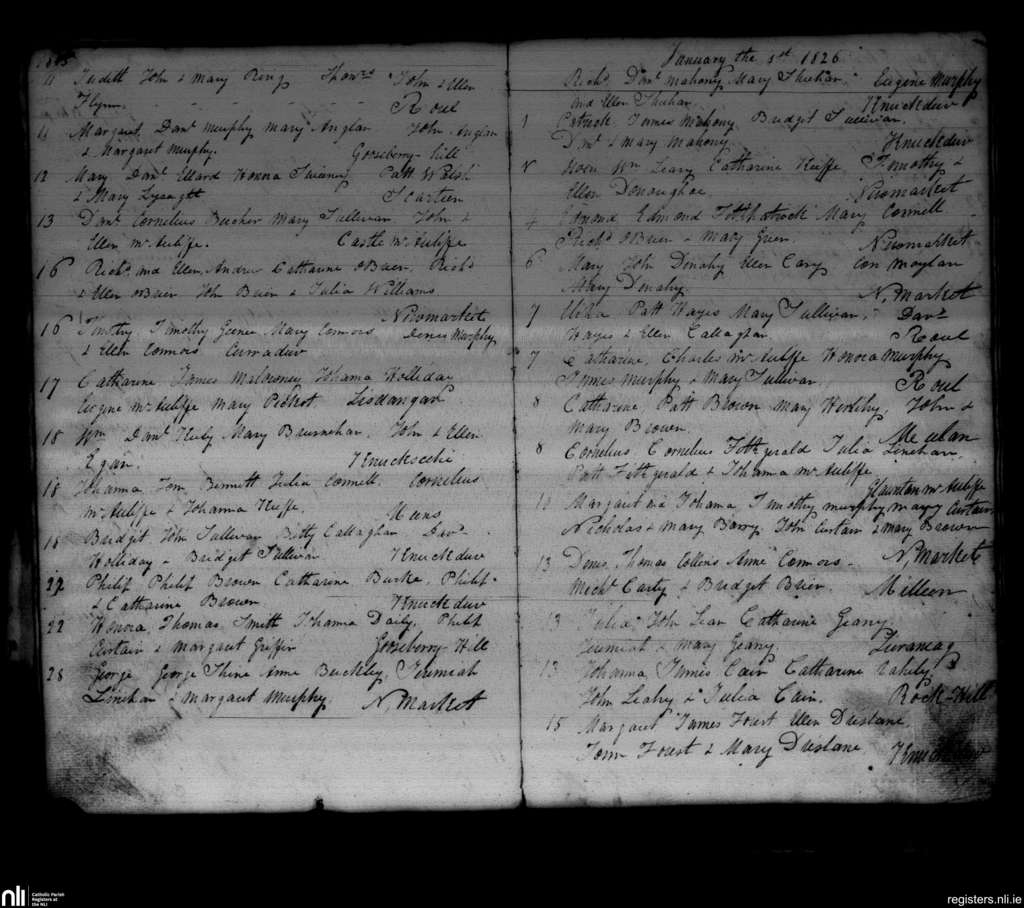 11 Judith John & Mary Ring Thos John & Ellen
Flynn. Roul
11 Margaret, Danl Murphy Mary Anglan John Anglan
& Margaret Murphy. Gooseberry-hill
12 Mary Danl Ellard Honora Patt Welsh
& Mary Lysaght Scarteen
13 Danl Cornelius Bucher Mary Sullivan John &
Ellen McAuliffe. Castle McAuliffe
16 Richd and Ellen, Andrew Catharine OBrien, Richd
& Ellen OBrien John Brien & Julia Williams
Newmarket
16 Timothy, Timothy Mary Connors Denis Murphy
& Ellen Connors
17 Catharine James Malowney Johanna Holliday
Eugene McAuliffe Mary Lisdangan
18 Wm Danl Mary John & Ellen
Egan.
18 Johanna Tom Bennett Julia Connell. Cornelius
McAuliffe & Johanna Keeffe. Meens
18 Bridget John Sullivan Betty Callaghan Danl
Holliday - Bridget Sullivan Knuckduv
22 Philip Philip Brown Catharine Burke, Philip
& Catharine Brown Knuckduv
22 Honora Thomas Smith Johanna Daily. Philip
Curtain & Margaret Griffin Gooseberry-Hill
28 George George Thine Anne Buckley, Jeremiah
Linehan & Margaret Murphy N,Market
January the 1st 1826
Richd Danl Mahony Mary Eugene Murphy
and Ellen Knuckduv
1 Patrick James Mahony Bridget Sullivan.
Danl & Mary Mahony Knuckduv
Wm Leary Catharine Keeffe Timothy &
Ellen Donoughoe Newmarket
4 Edmond Edmond Fitzpatrick Mary Connell
Richd OBrien - Mary Green. Newmarket
6 Mary John Denahy Ellen Cary Con Moylan
Mary Denahy N,Market
7 Patt Hayes Mary Sullivan, Danl
Hayes & Ellen Callaghan Roul
7 Catharine, Charles McAuliffe Honora Murphy
James Murphy & Mary Sullivan. Roul
8 Catharine, Patt Brown Mary John &
Mary Brown Meulan
8 Cornelius Cornelius Fitzgerald Julia Linehan.
Patt Fitzgerald & Johanna McAuliffe
Glauntan McAuliffe
Margaret and Johanna Timothy Murphy Mary Curtain
Nicholas & Mary Barry. John Curtain & Mary Brown
N,Market
13 Denis, Thomas Collins Anne Connors -
Michl Carty & Bridget Brien. Milleen
13 Julia John Lean Catharine Geany
Jeremiah & Mary Geany.
13 Johanna James Cain Catharine
John Leahy & Julia Cain. Rock-Hill
15 Margaret James Foust Ellen Drislane
John Foust & Mary Drislane
nli Catholic Parish
Registers at
the NLI
registers.nli.ie